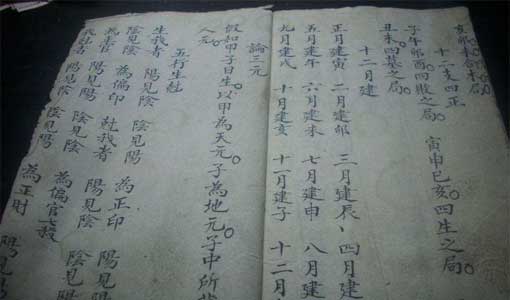 亥卯未合木局
十二支四正
子午卯酉。四敗之局。 寅申巳亥。四生之局。
丑未。四墓之局。
十二月建
正月建寅 二月建卯 三月建辰、四月建
五月建午 六月建未 七月建申 八月建
九月建戌 十月建亥 十一月建子 十二月
論三元
假如甲子日生。以甲為天元。子為地元。子中所
人元。
五行生尅
生我者 陽見陰 陰見陽 為正印 陽見陽
陰見陰 為偏印 尅我者 陽見陰 陰見陽
為正官 陽見陽 陰見陰 為偏官
我尅者 陽見陰 陰見陽 為正財 陽見